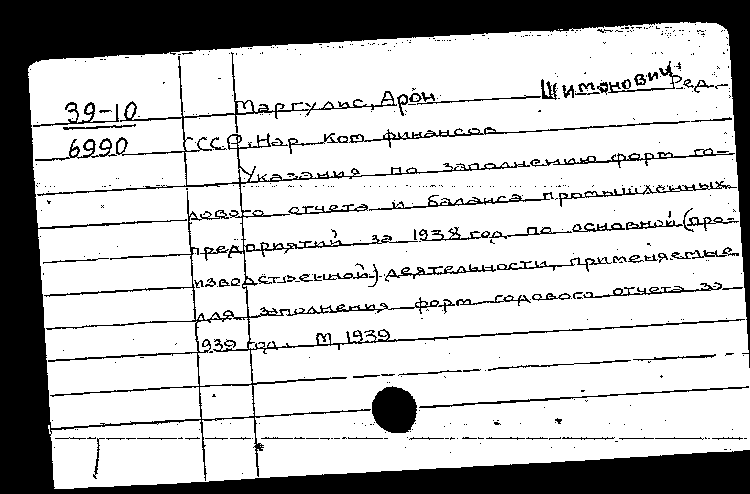 39-10 Маргулис, Арон Шимонович. Ред.
6990 СССР. Нар. Ком. финансов
Указания по заполнению форм го-
дового отчета и баланса промышленных
предприятий за 1938 год по основной (про-
изводственной) деятельности, применяемые
для заполнения форм годового отчета за
1939 год. М, 1939